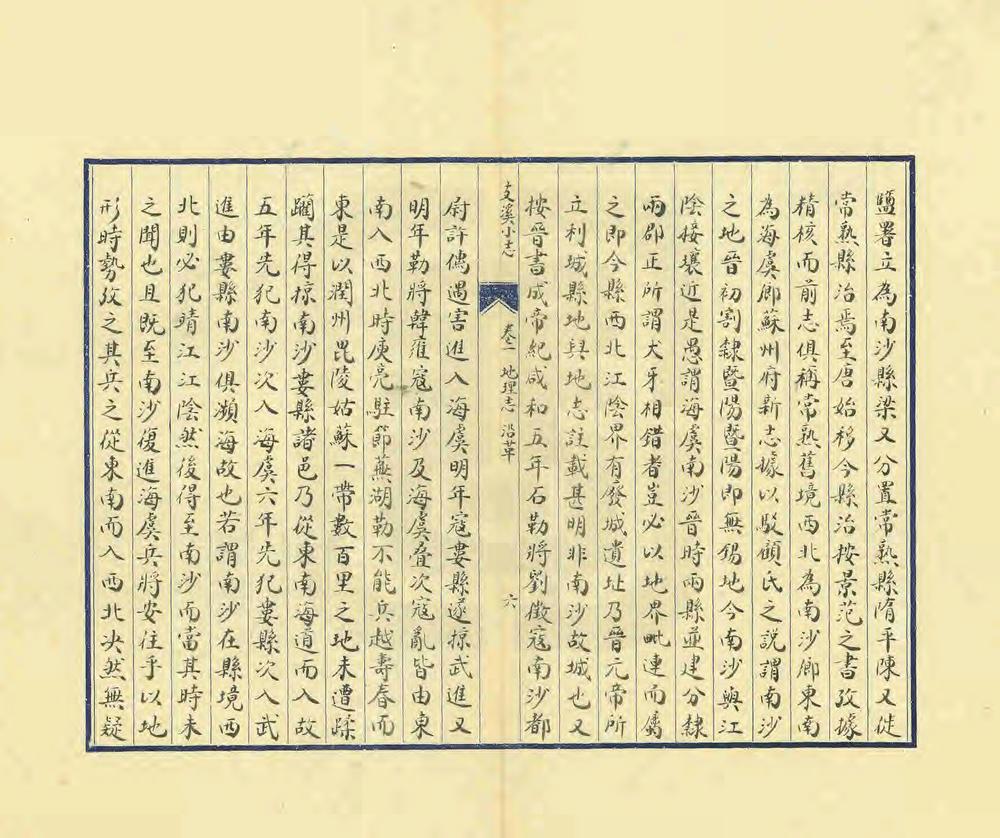 鹽署立為南沙縣梁又分置常熟縣隋平陳又徙
常熟縣治焉至唐始移今縣治按景范之書攷據
精核而前志俱稱常熟舊境西北為南沙鄉東南
為海虞鄉蘇州府新志據以駁顧氏之説謂南沙
之地晉初割隸暨陽暨陽即無錫地今南沙與江
陰接壤近是愚謂海虞南沙晉時兩縣並建分隸
兩郡正所謂犬牙相錯者豈必以地界毗連而屬
之即今縣西北江陰界有廢城遺址乃晉元帝所
立利城縣地輿地志註載甚明非南沙故城也又
按晉書成帝紀咸和五年石勒將劉徵寇南沙都
支溪小志 卷一 地理志 沿革 六
尉許儒遇害進入海虞明年寇婁縣遂掠武進又
明年勒將韓雍寇南沙及海虞疊次寇亂皆由東
南入西北時庾亮駐節蕪湖勒不能兵越壽春而
東是以潤州毘陵姑蘇一帶數百里之地未遭蹂
躪其得掠南沙婁縣諸邑乃從東南海道而入故
五年先犯南沙次入海虞六年先犯婁縣次入武
進由婁縣南沙俱瀕海故也若謂南沙在縣境西
北則必犯晴江江陰然後得至南沙而當其時未
之聞也且既至南沙復進海虞兵將安往乎以地
形時勢攷之其兵之從東南而入西北決然無疑